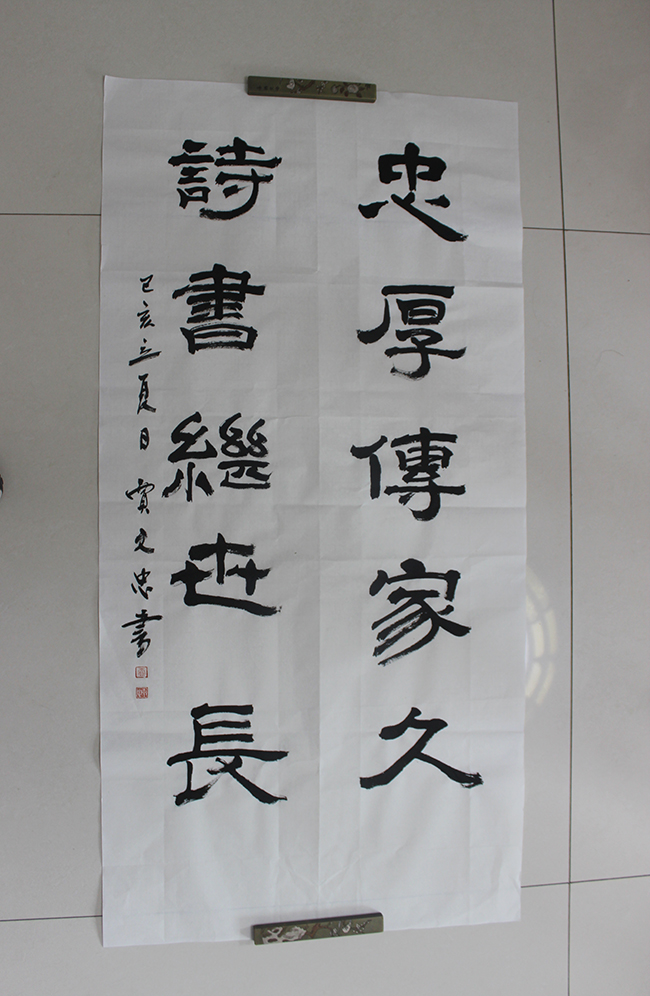 忠厚傳家久
詩書繼世長
己亥立夏日賈文忠書